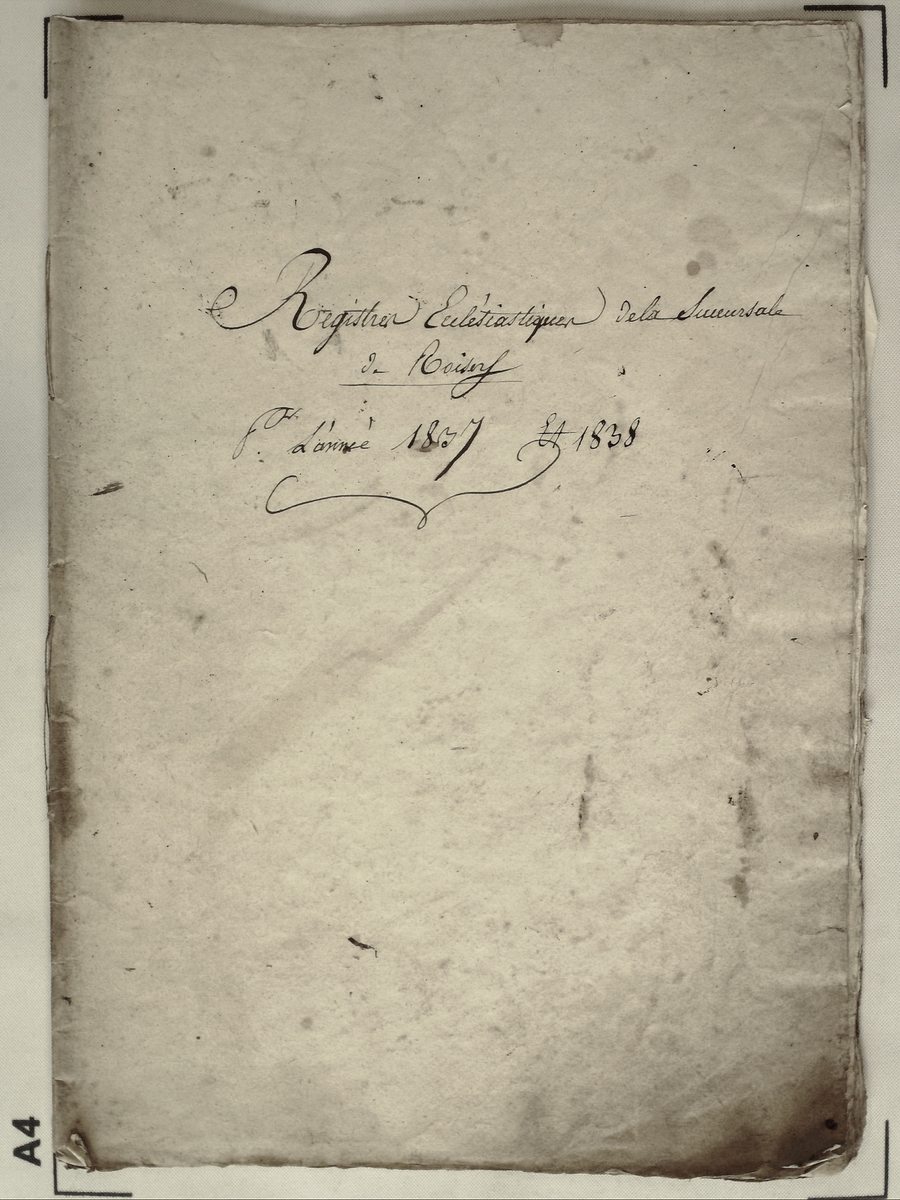 Registres Ecclésiastiques de la Succursale
de Roisey
Pr. L'année 1837 Et 1838
A4